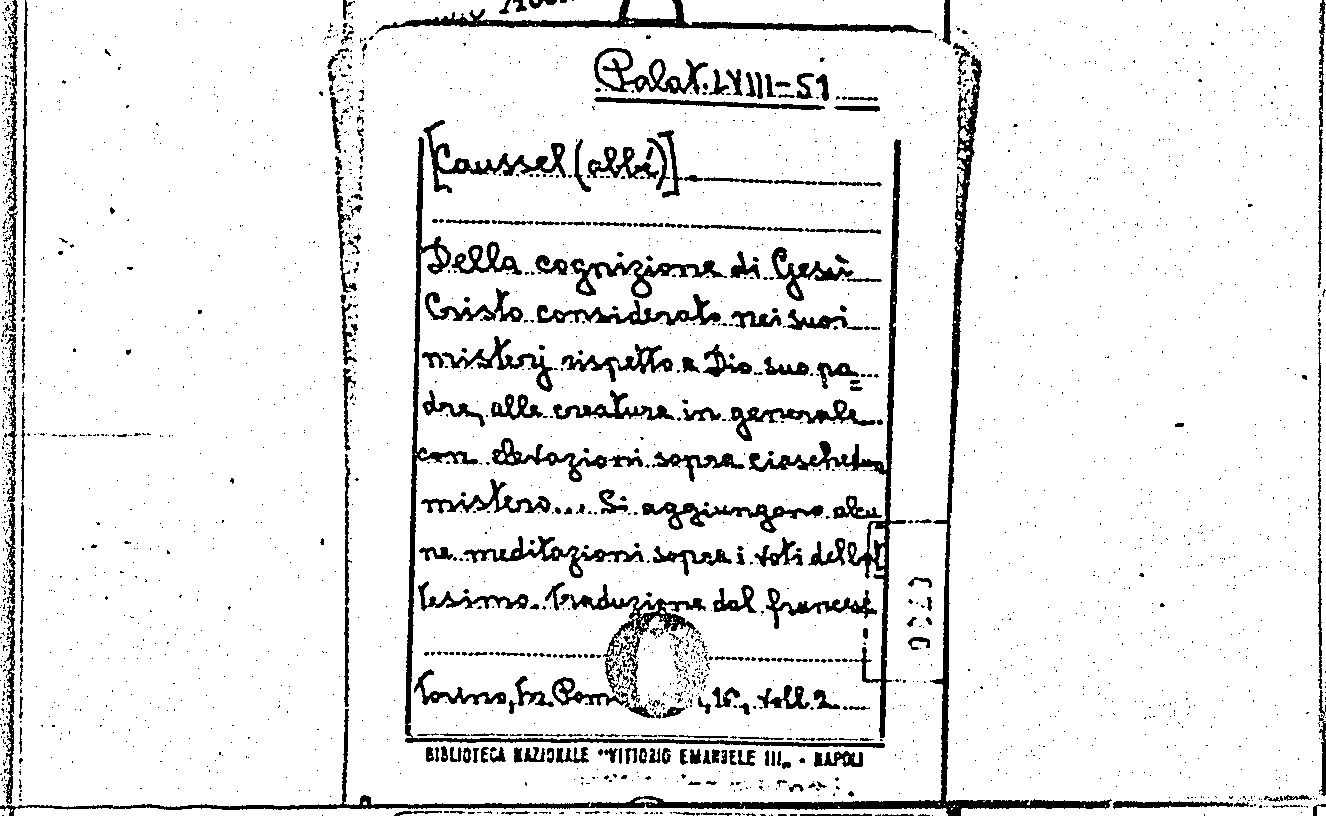 Palat. LVIII-51
[Caussel (abbé)]
Della cognizione di Gesù
Cristo considerato nei suoi
misterj rispetto a Dio suo pa=
dre, alle creature in generale
con elevazioni sopra ciaschedun
mistero... Si aggiungono alcu
ne meditazioni sopra i voti del bat
tesimo. Traduzione dal francese
Torino, Fr. Pom , 16°, voll. 2.
BIBLIOTECA NAZIONALE "VITTORIO EMANUELE III„ - NAPOLI